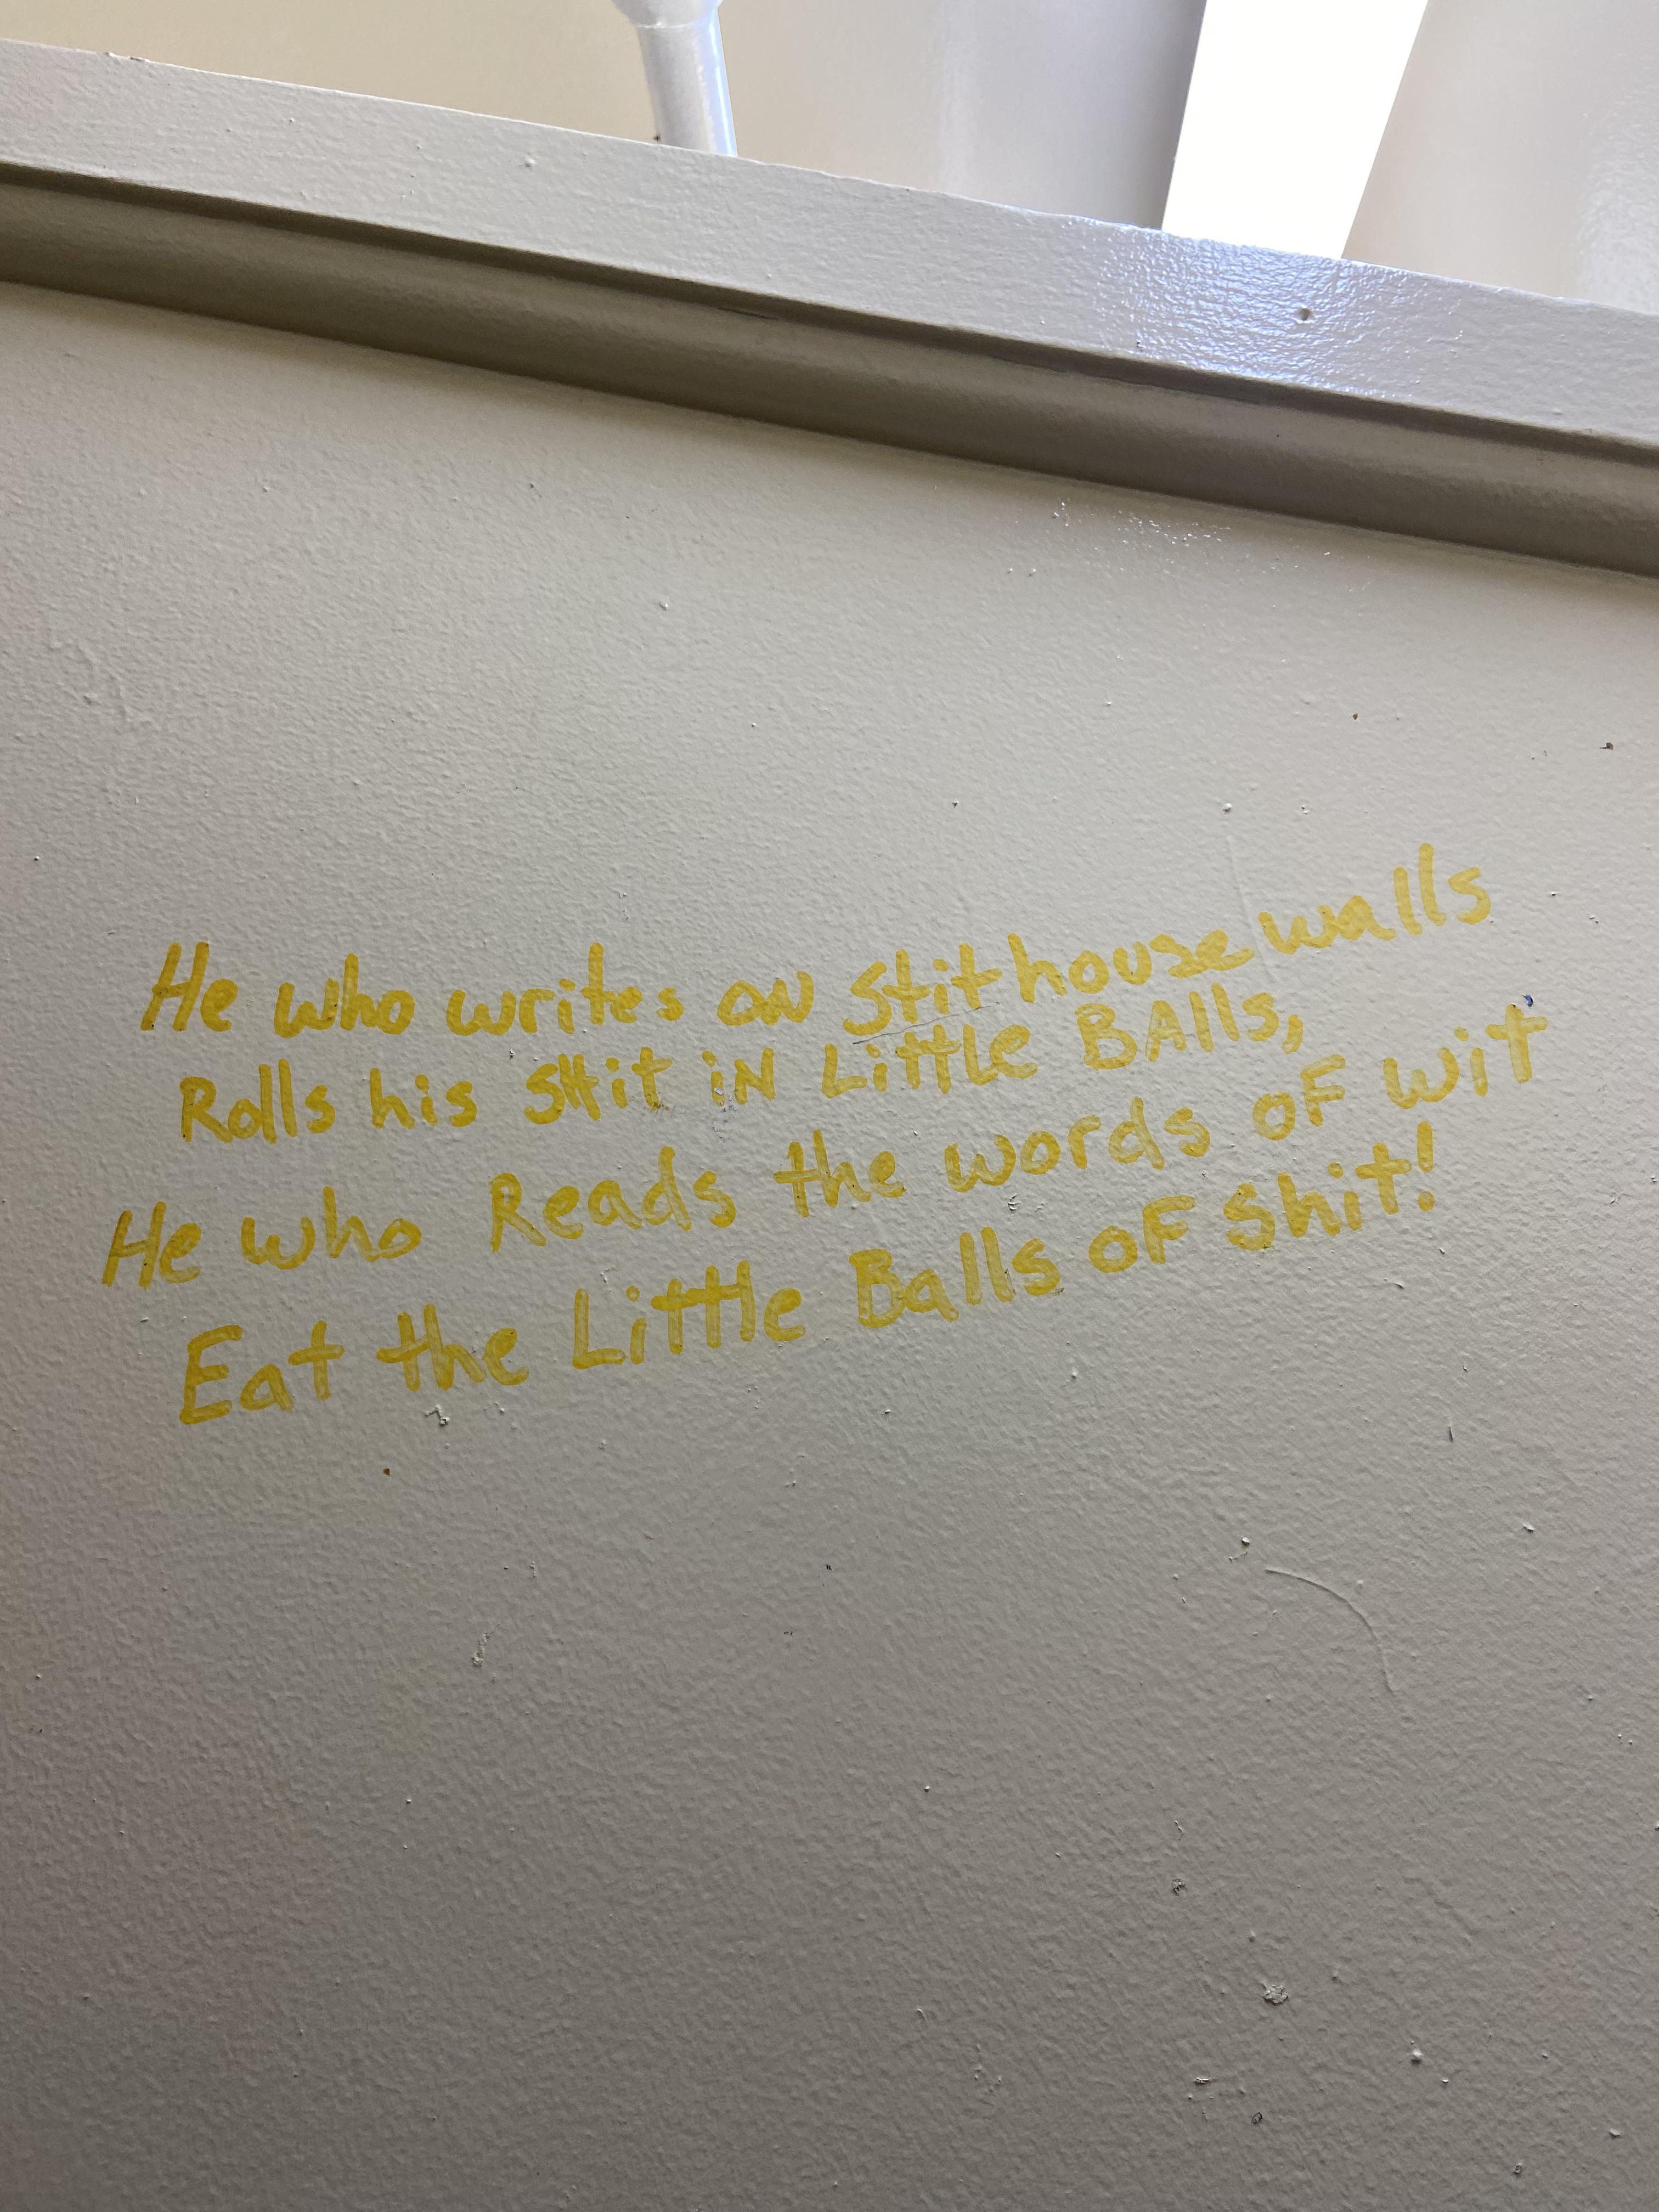 He who writes on Stithouse walls
Rolls his SHit iN Little BAlls,
He who Reads the words oF wit
Eat the Little Balls oF Shit!